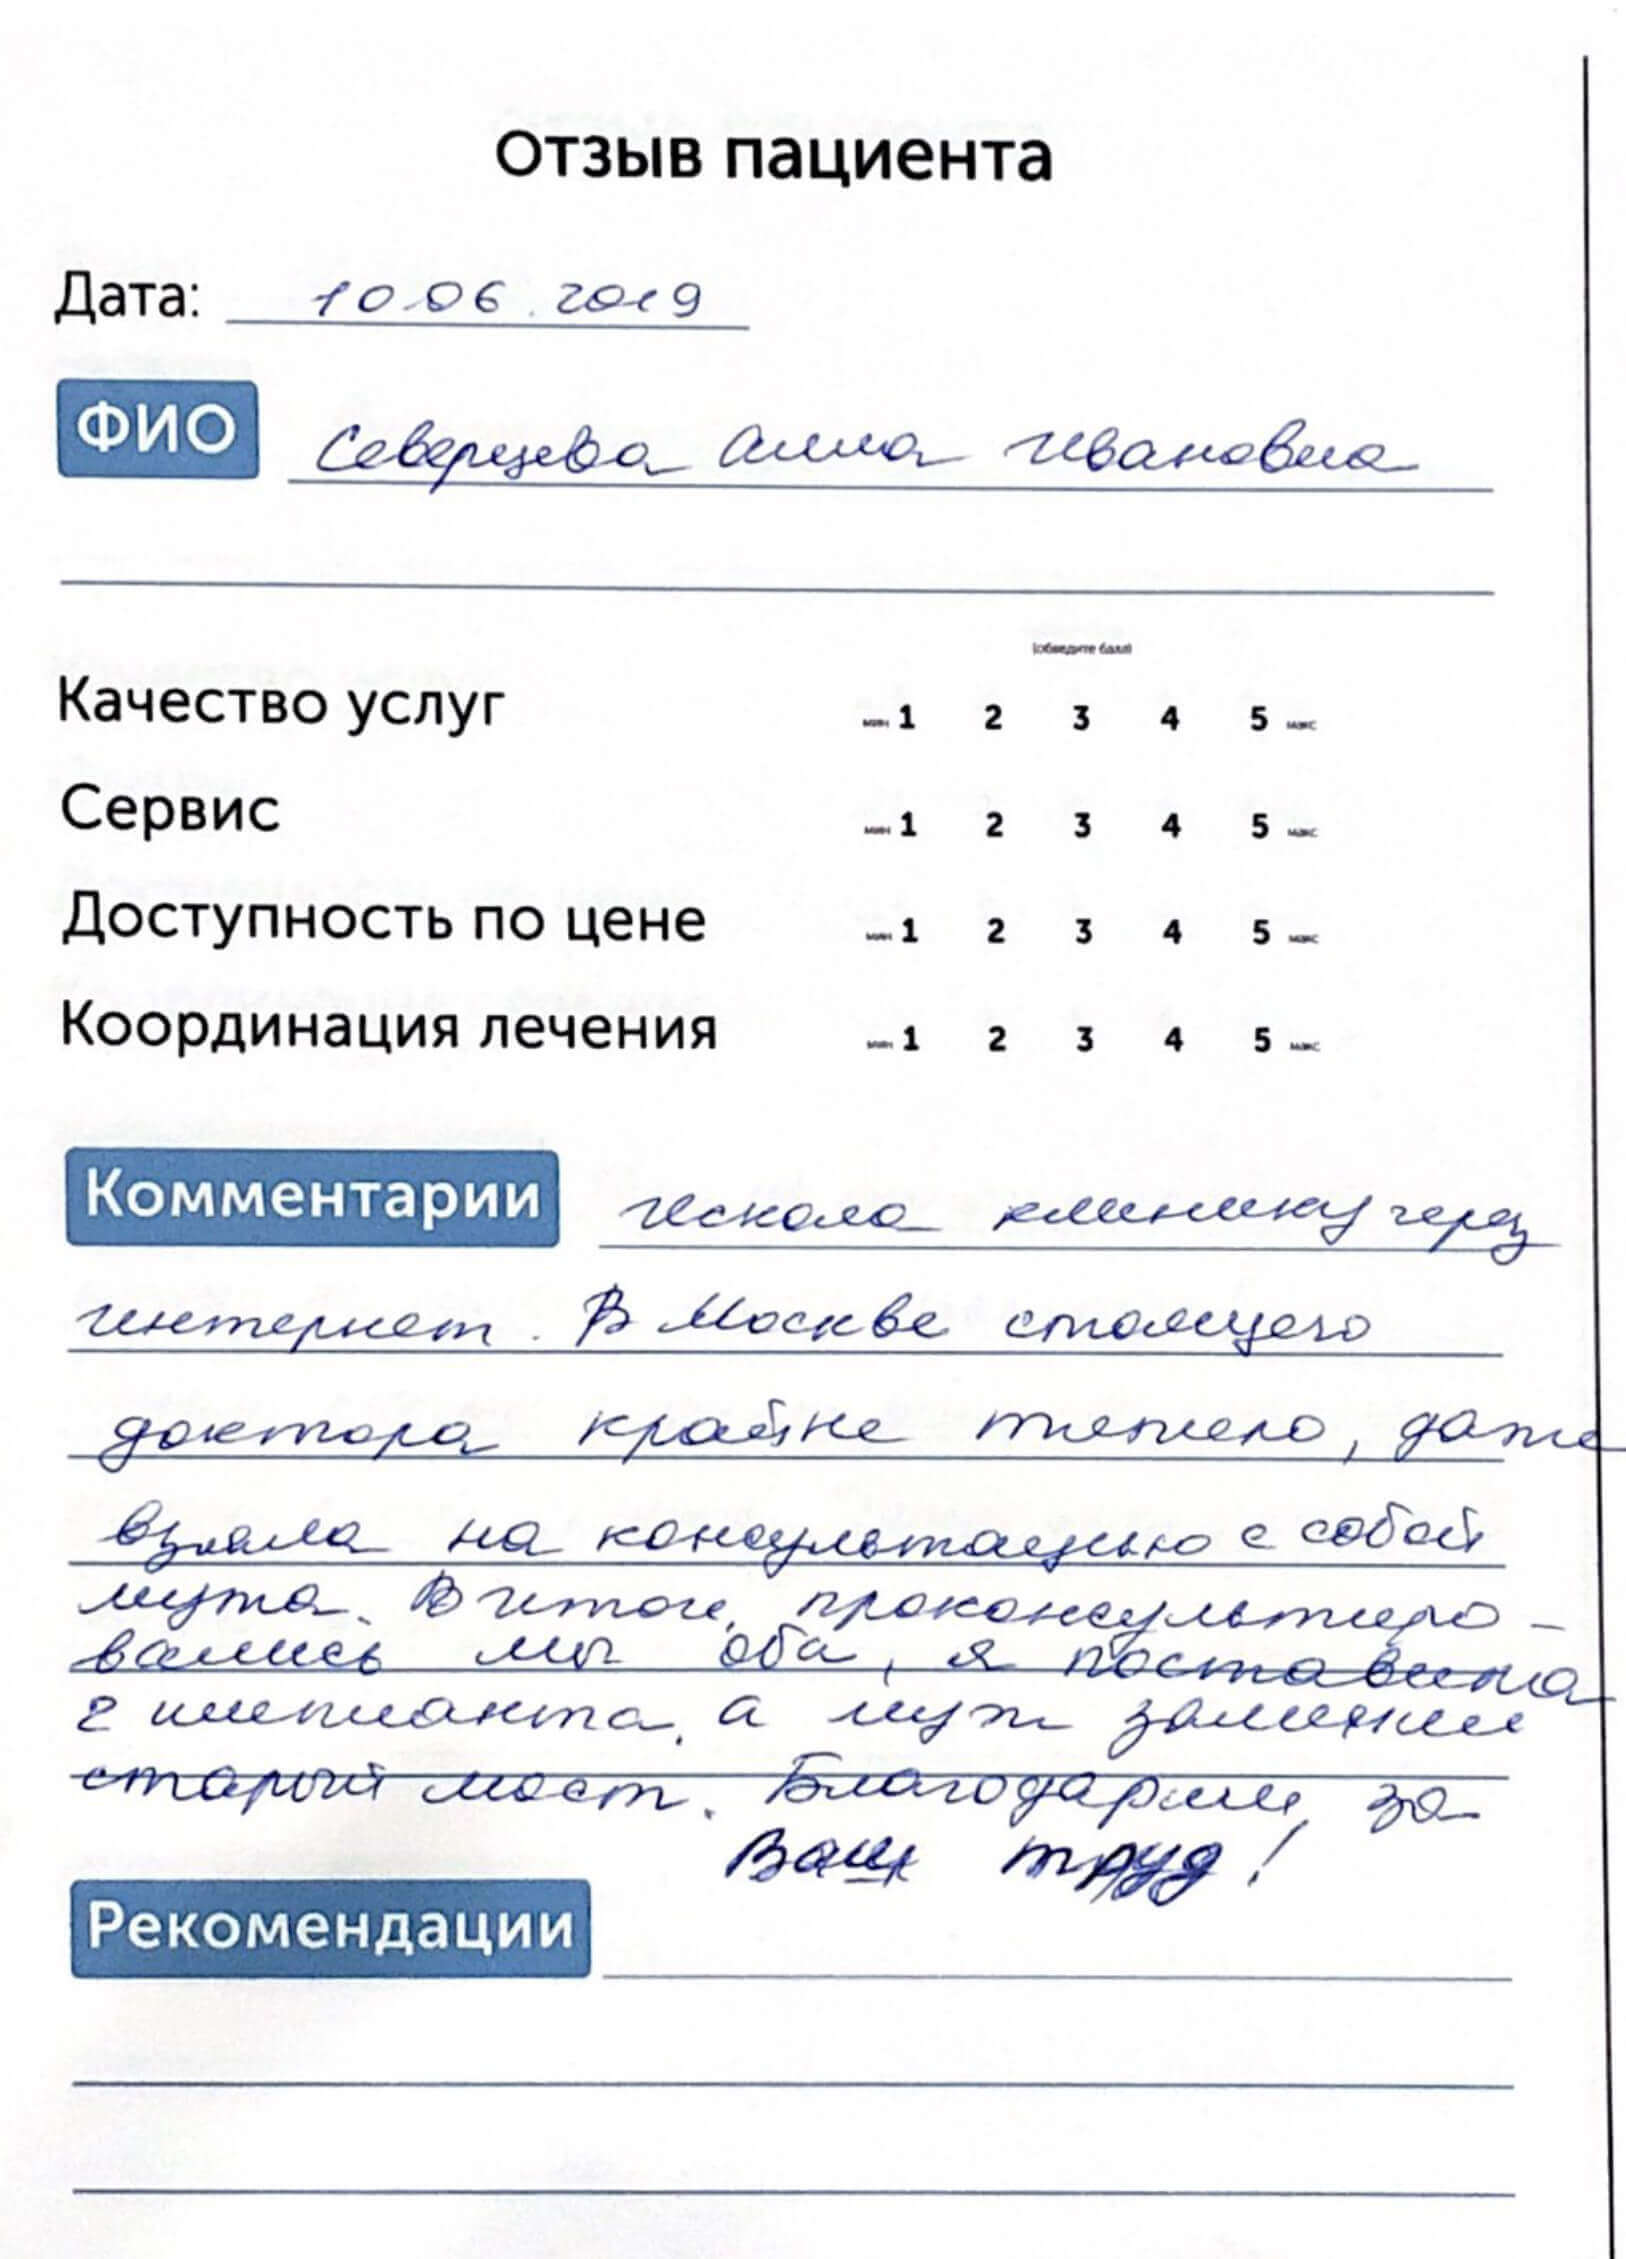 Отзыв пациента
Дата: 10.06.2019
ФИО Северцева Алла Ивановна
(обведите балл)
Качество услуг мин 1 2 3 4 5 макс
Сервис мин 1 2 3 4 5 макс
Доступность по цене мин 1 2 3 4 5 макс
Координация лечения мин 1 2 3 4 5 макс
Комментарии Искала клинику через
интернет. В Москве стоящего
доктора крайне тяжело, даже
взяла на консультацию с собой
мужа. В итоге, проконсультиро-
вались мы оба, я поставила
2 импланта, а муж заменил
старый мост. Благодарим за
Ваш труд!
Рекомендации